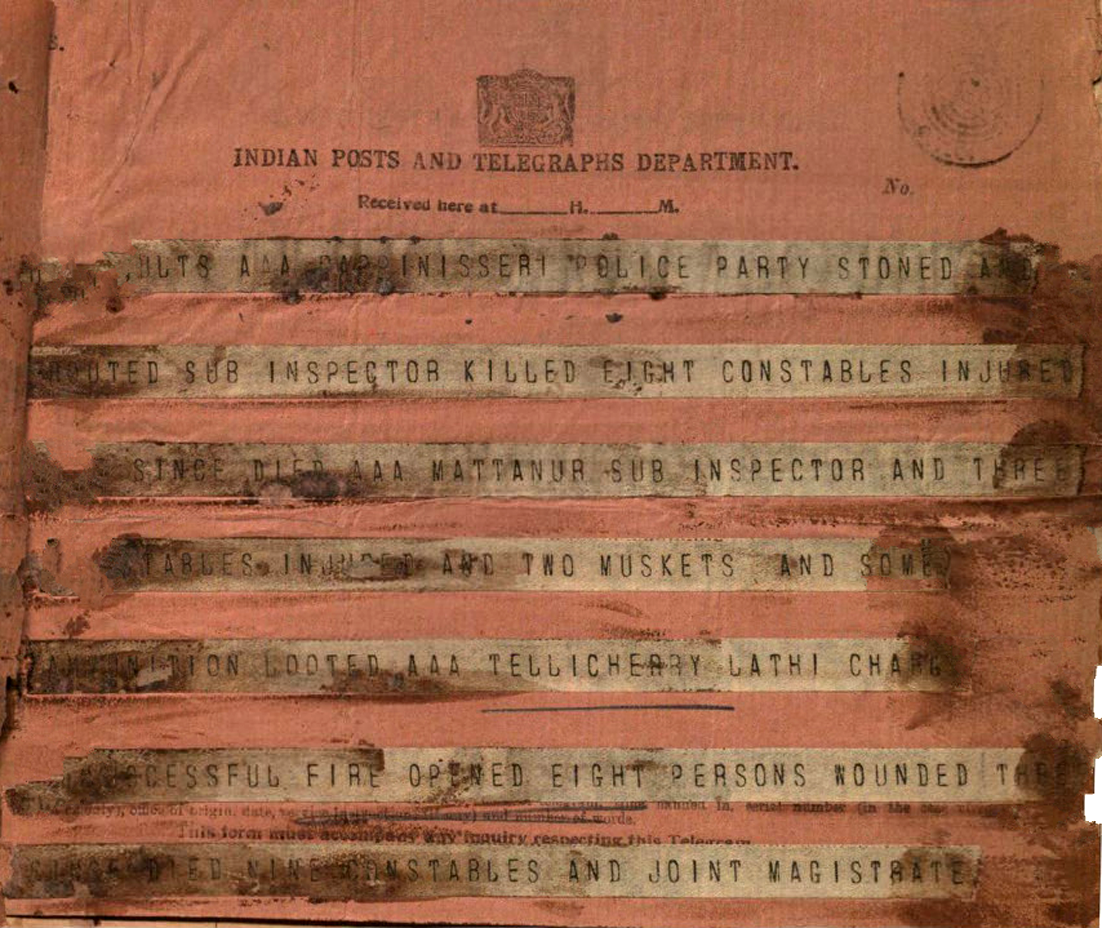 INDIAN POSTS AND TELEGRAPHS DEPARTMENT.
No.
Received here at______H.______M.
AAA PAPPINISSERI POLICE PARTY STONED AND
ROUTED SUB INSPECTOR KILLED EIGHT CONSTABLES INJURED
SINCE DIED AAA MATTANUR SUB INSPECTOR AND THREE
TABLES INJURED AND TWO MUSKETS AND SOME
AMMUNITION LOOTED AAA TELLICHERRY LATHI CHARG
CCESSFUL FIRE OPENED EIGHT PERSONS WOUNDED THRE
office of origin, date, handed in, serial number (in the
and number of words.
This form must accompany any inquiry respecting this Telegram
SINCE DIED NINE CONSTABLES AND JOINT MAGISTRATE